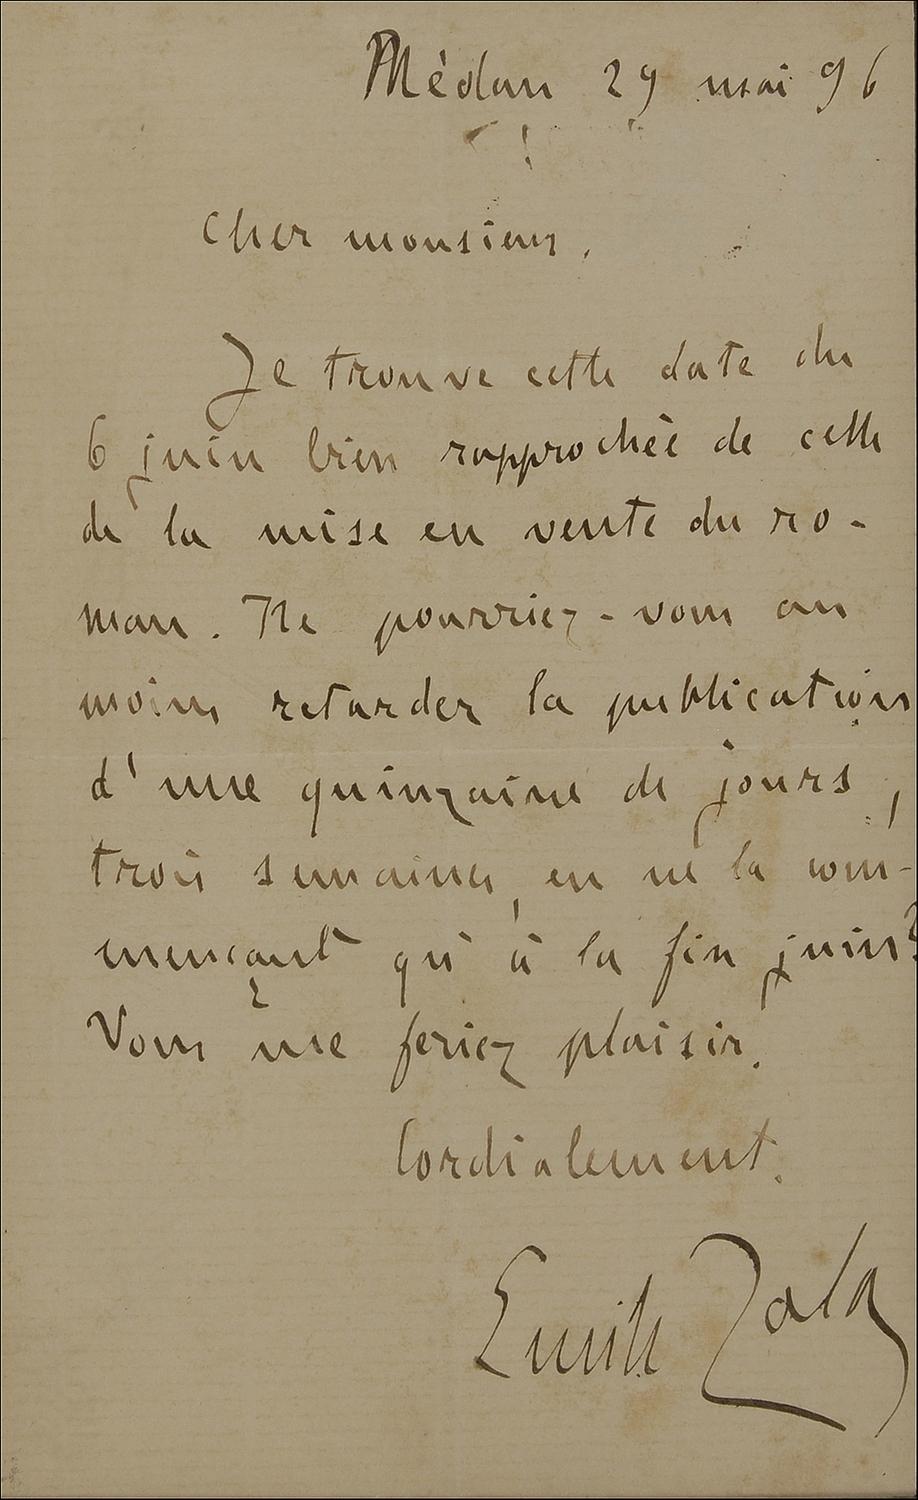 Médan 29 mai 96
Cher monsieur,
Je trouve cette date du
6 juin bien rapprochée de celle
de la mise en vente du ro-
man. Ne pourriez-vous au
moins retarder la publication
d'une quinzaine de jours,
trois semaines, en ne la com-
mençant qu'à la fin juin?
Vous me feriez plaisir.
Cordialement.
Emile Zola